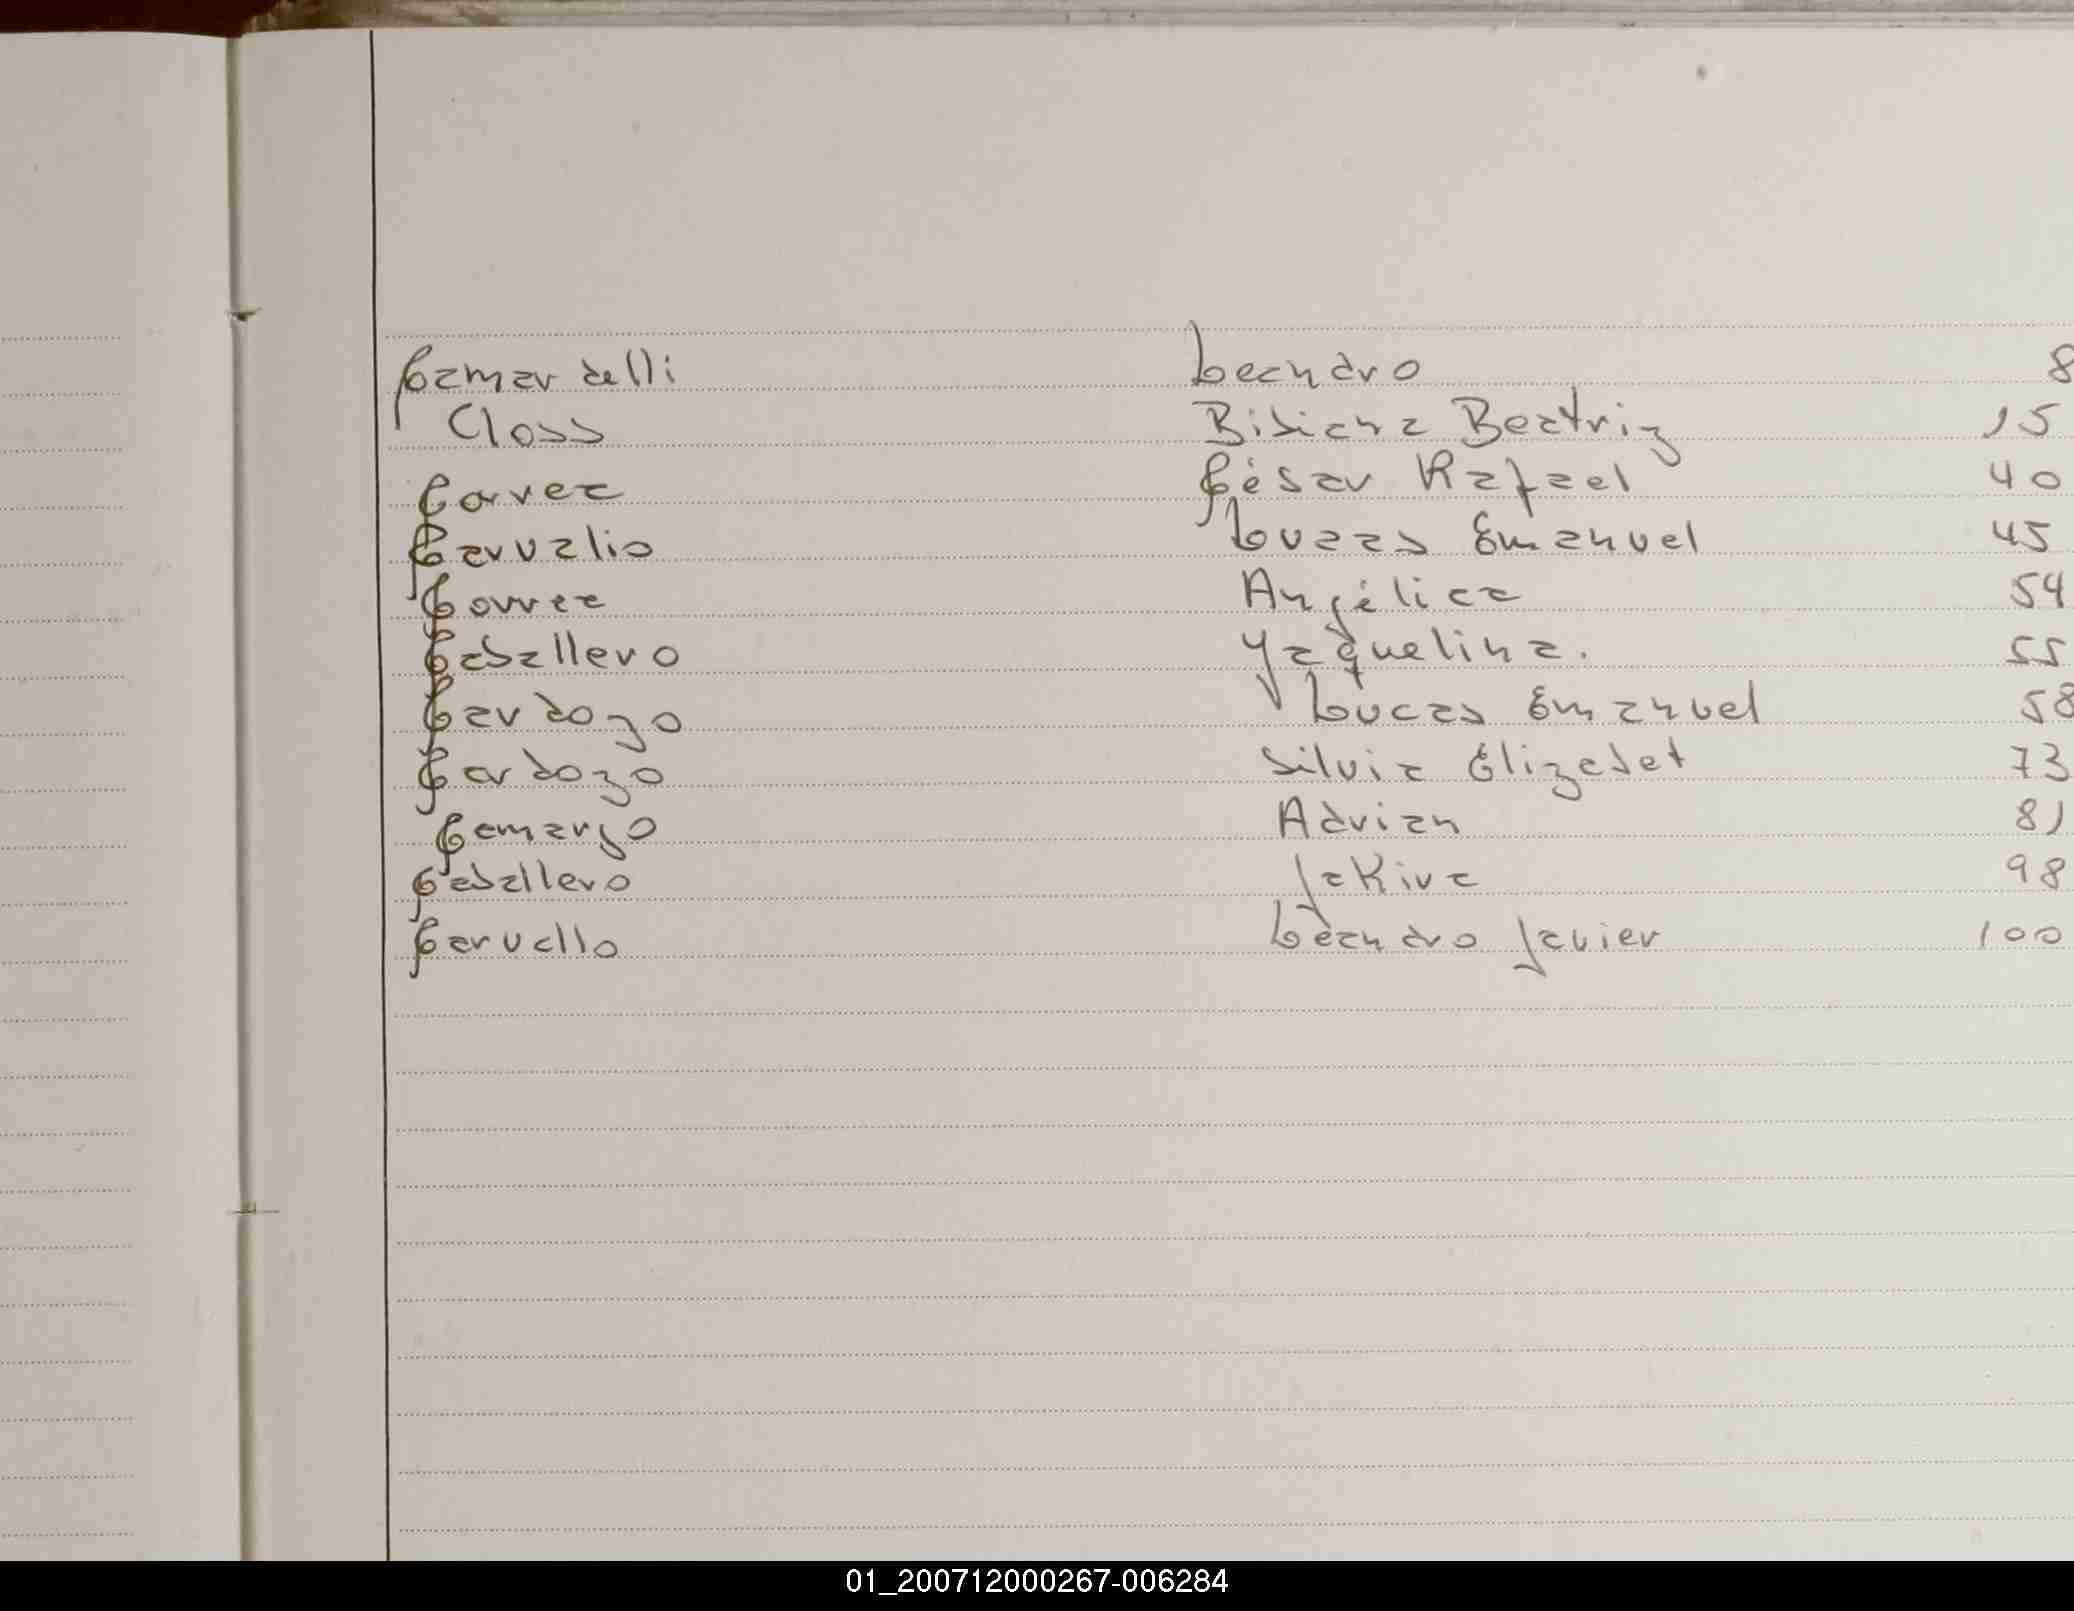 Camardelli Leandro 8
Closs Bibiana Beatriz 15
Correa César Rafael 40
Carvalio Lucas Emanuel 45
Correa Angélica 54
Caballero Yaquelina. 55
Cardozo Lucas Emanuel 58
Cardozo Silvia Elizabet 73
Camargo Adrian 81
Caballero Jakiva 98
Carvallo Leandro Javier 100
01_200712000267-006284